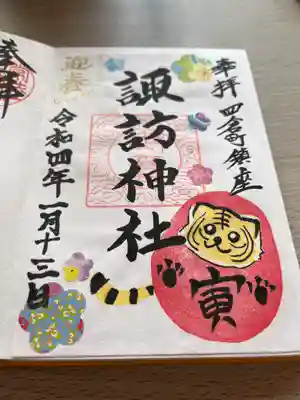 奉拝 四倉町鎮座
迎春
諏訪神社
令和四年一月十三日
寅
奉拝